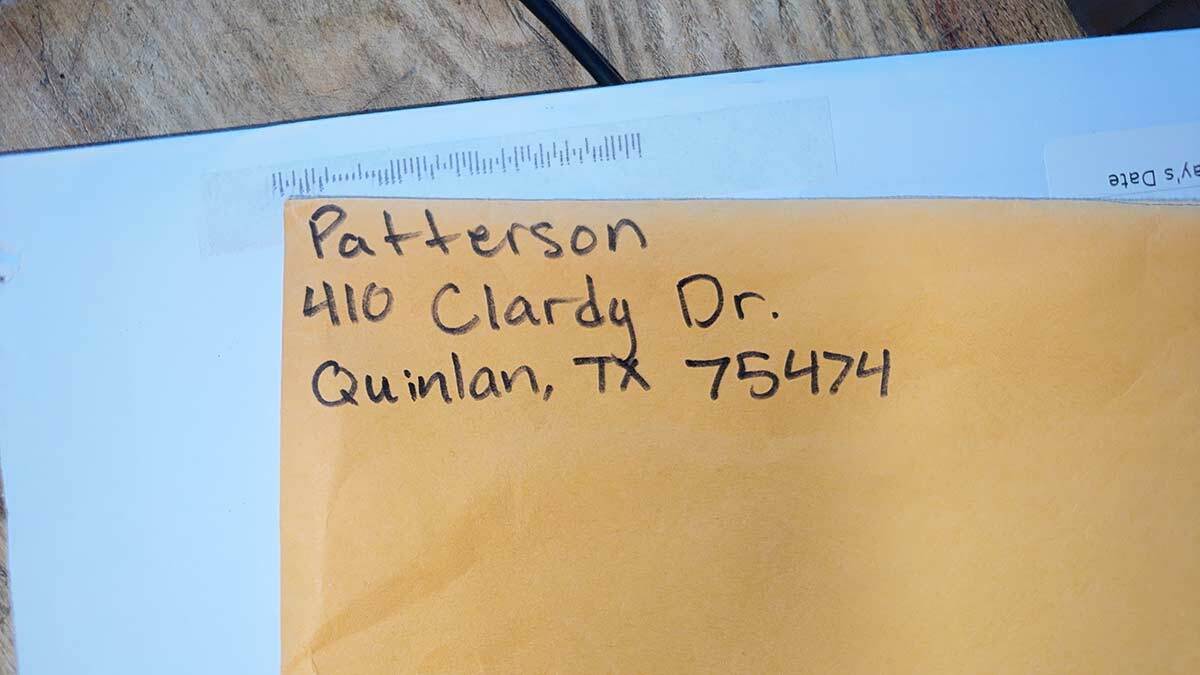 Patterson
410 Clardy Dr.
Quinlan, TX 75474
ay's Date